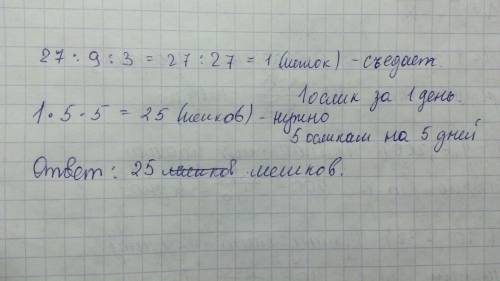 27 : 9 : 3 = 27 : 27 = 1 (мешок) - съедает
1 ослик за 1 день.
1 · 5 · 5 = 25 (мешков) - нужно
5 осликам на 5 дней
Ответ: 25 мешков мешков.